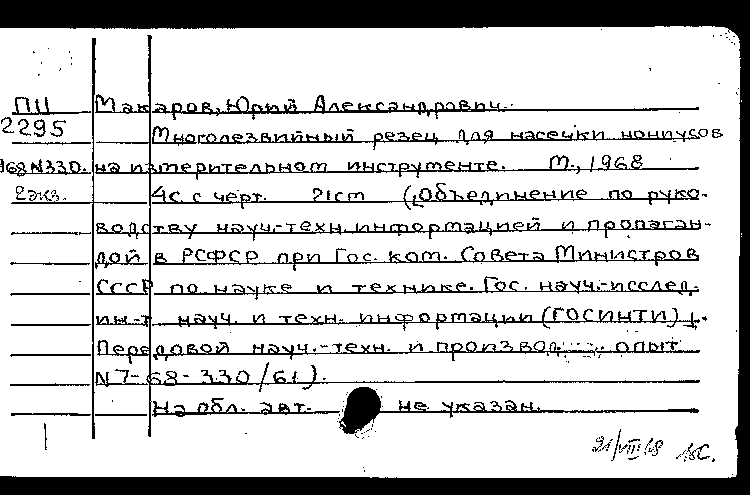 ПII Макаров, Юрий Александрович.
2295 Многолезвийный резец для насечки нониусов
968 N330. на измерительном инструменте. М., 1968
2экз. 4с. с черт. 21см (Объединение по руко-
водству науч.-техн. информацией и пропаган-
дой в РСФСР при Гос. ком. Совета Министров
СССР по науке и технике. Гос. науч.-исслед.
ин-т науч. и техн. информации (ГОСИНТИ).
Передовой науч.-техн. и производ. опыт
N7-68-330/61).
На обл. авт. не указан.
21/VIII 68